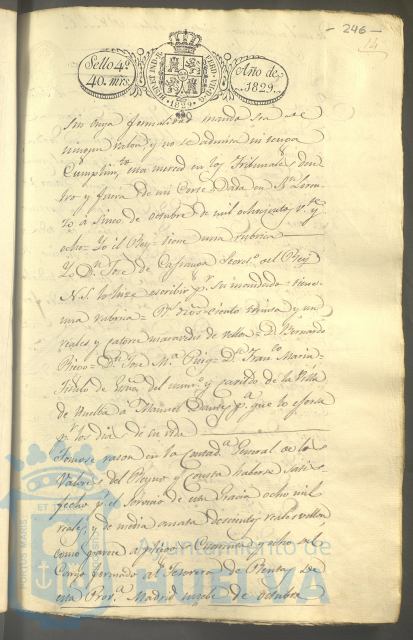 - 246 -
14
Sello 4º
40. mrs.
HISP. ET IND. R.
FERD. VII D. G.
1829
Año de
1829.
Sin cuya formalidad mando sea de
ningun valor y no se admita ni tenga
Cumplimto. esta merced en los Tribunales den-
tro y fuera de mi Corte = Dada en Sn. Loren-
zo á cinco de octubre de mil ochocientos vte. y
ocho = Yo el Rey = tiene una rubrica
Yo Dn. José de Cafranga Secreto. del Rey
N. S. lo hize escribir pr. su mandado = tiene
una rubrica = ciento treinta y un
reales y catorce maravedis de vellon = D. Bernardo
Riego = Dn. José Ma. Puig = Dn. Franco. Marin =
Titulo de del numo. y partido de la Villa
de Huelba á Manuel pa. que lo ejerza
pr. los dias de su vida
Tomose razon en la Contada. General de los
Valores del Reyno y Consta haberse satis-
fecho pr. el Servicio de esta Gracia ocho mil
reales, y de media annata doscientos reales vellon
como parece á pliegos Cuarenta y ocho del
Cargo formado al Tesorero de Rentas de
esta Prova. Madrid nuebe de octubre
Ayuntamiento de
HUELVA
PORTUS MARIS
ET